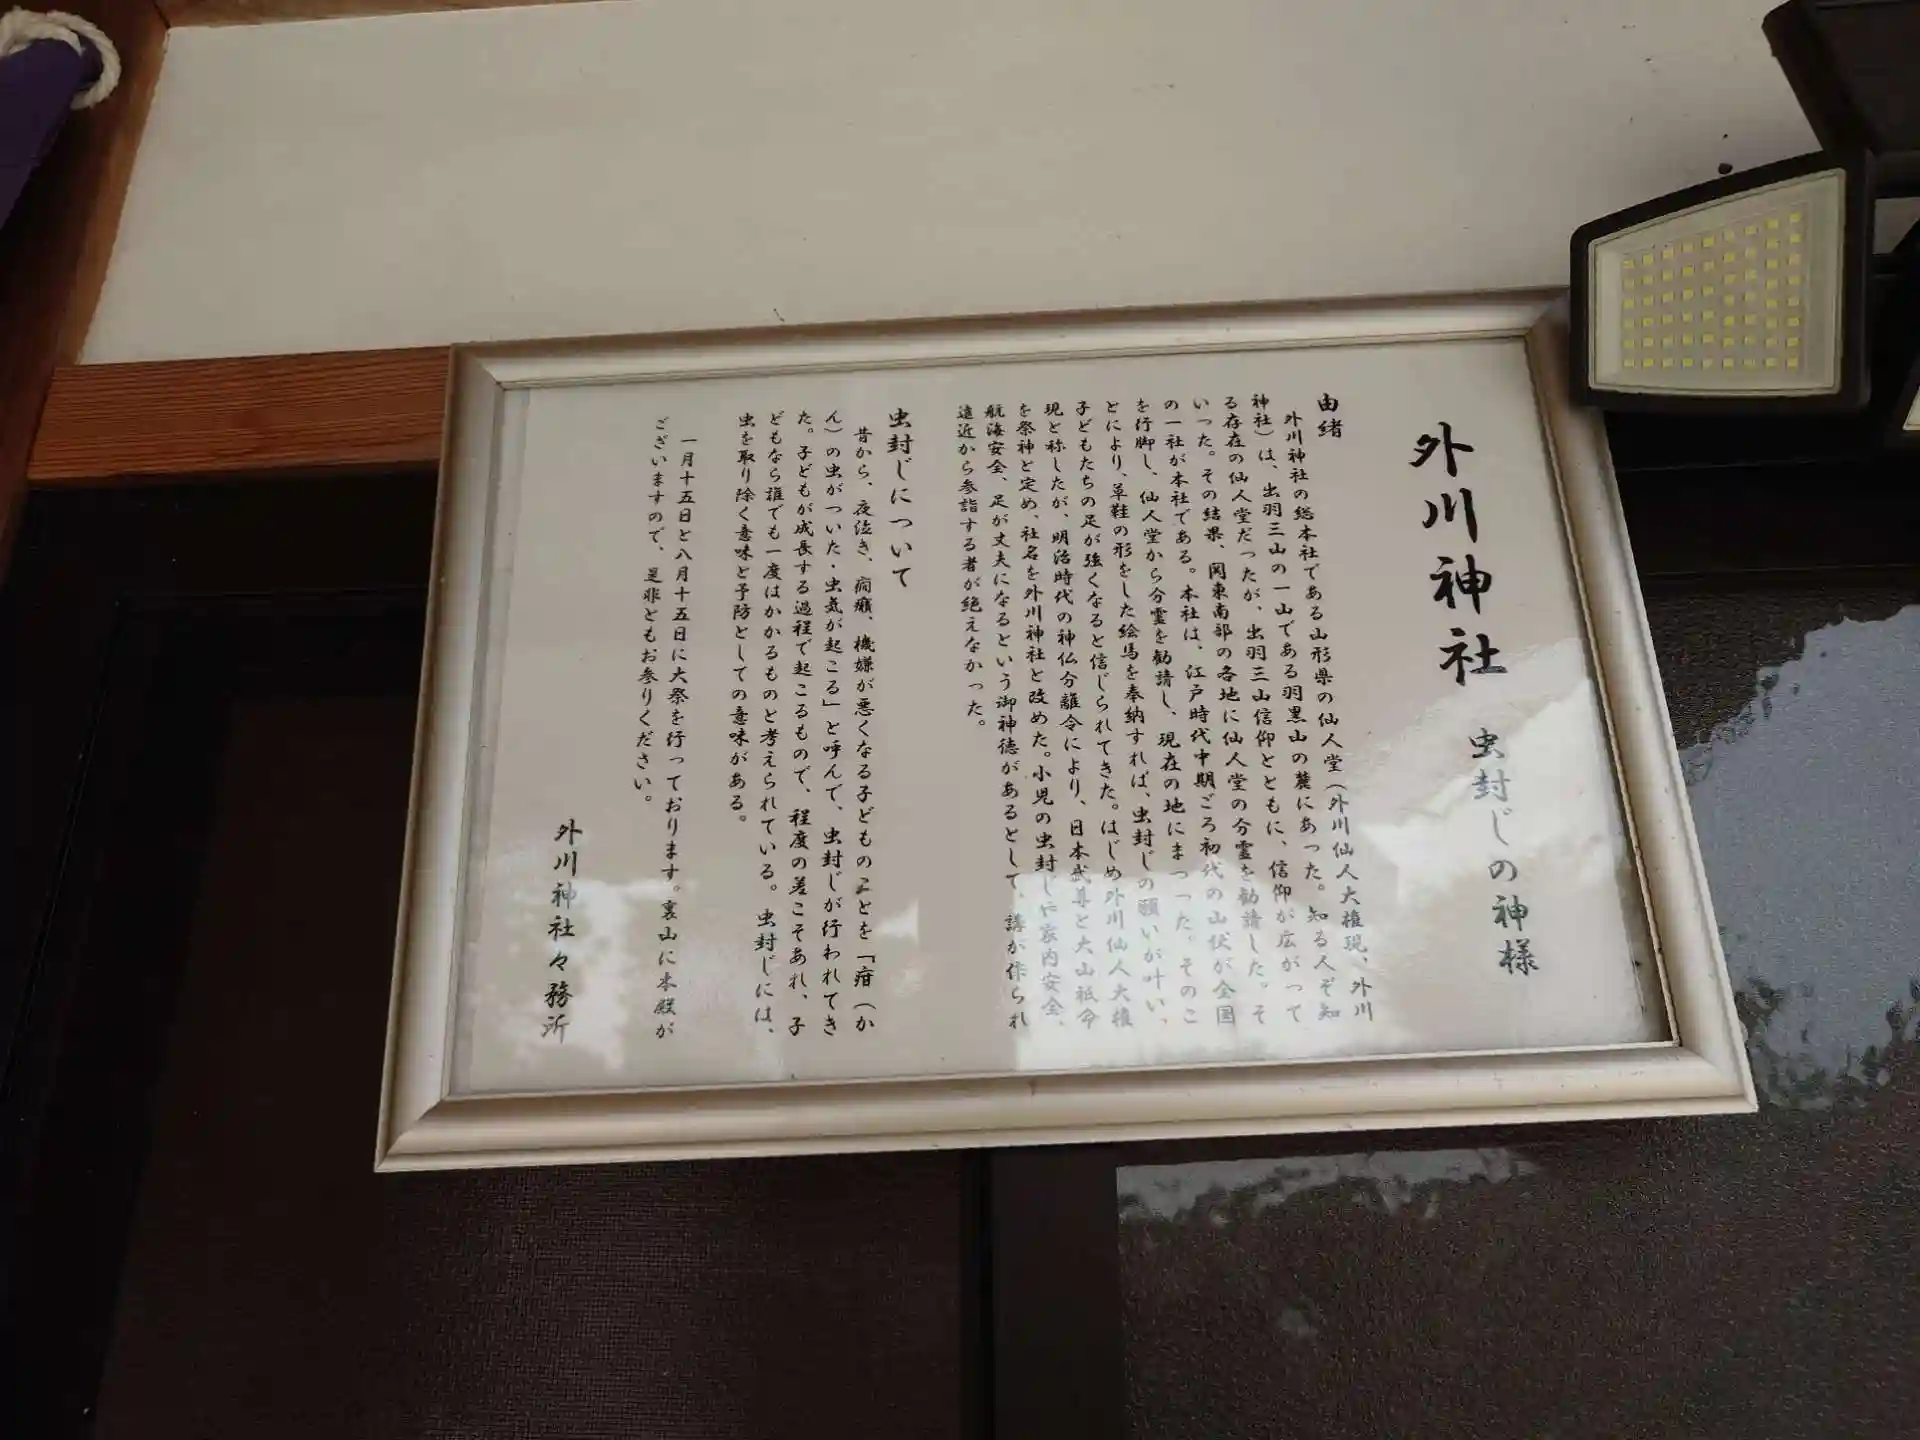 外川神社 虫封じの神様
由緒
外川神社の総本社である山形県の仙人堂(外川仙人大権現、外川
神社)は、出羽三山の一山である羽黒山の麓にあった。知る人ぞ知
る存在の仙人堂だったが、出羽三山信仰とともに、信仰が広がって
いった。その結果、関東南部の各地に仙人堂の分霊を勧請した。そ
の一社が本社である。本社は、江戸時代中期ごろ初代の山伏が全国
を行脚し、仙人堂から分霊を勧請し、現在の地にまつった。そのこ
とにより、草鞋の形をした絵馬を奉納すれば、虫封じの願いが叶い、
子どもたちの足が強くなると信じられてきた。はじめ外川仙人大権
現と称したが、明治時代の神仏分離令により、日本武尊と大山祇命
を祭神と定め、社名を外川神社と改めた。小児の虫封じや家内安全、
航海安全、足が丈夫になるという御神徳があるとして、講が作られ
遠近から参詣する者が絶えなかった。
虫封じについて
昔から、夜泣き、癇癪、機嫌が悪くなる子どものことを「疳(か
ん)の虫がついた・虫気が起こる」と呼んで、虫封じが行われてき
た。子どもが成長する過程で起こるもので、程度の差こそあれ、子
どもなら誰でも一度はかかるものと考えられている。虫封じには、
虫を取り除く意味と予防としての意味がある。
一月十五日と八月十五日に大祭を行っております。裏山に本殿が
ございますので、是非ともお参りください。
外川神社々務所